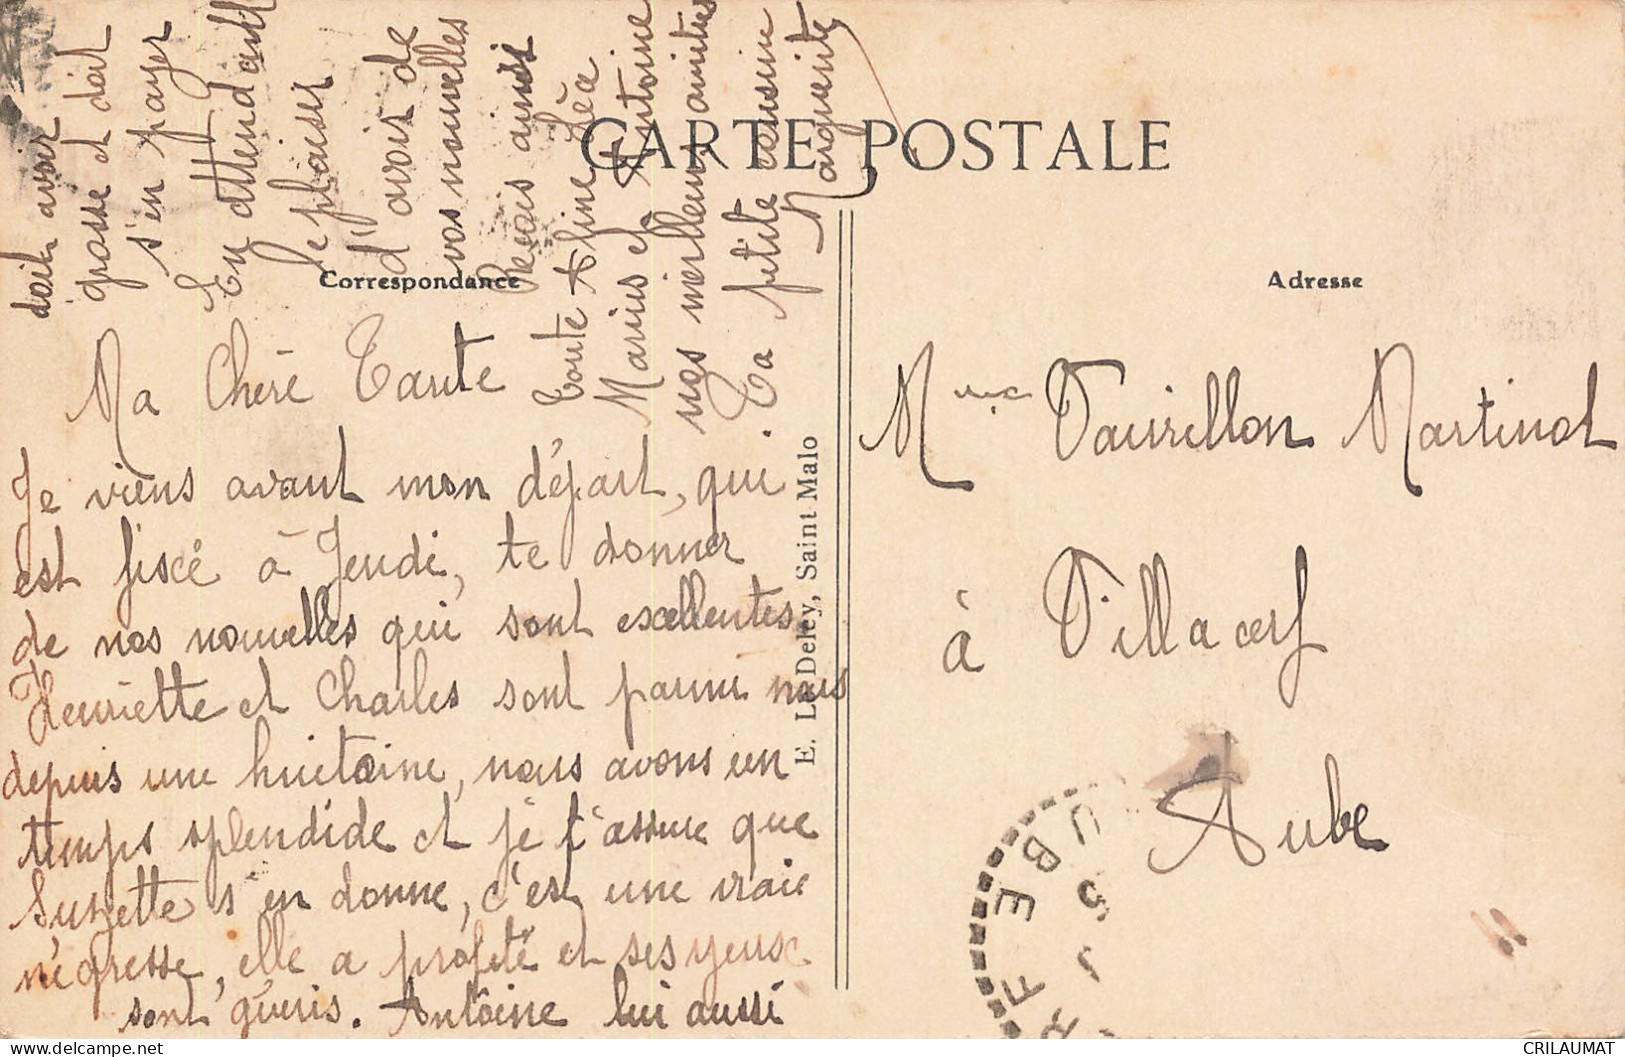 CARTE POSTALE
Correspondance
Adresse
Ma Chère Tante
Je viens avant mon départ, qui
est fiscé à Jeudi, te donner
de nos nouvelles qui sont excellentes
Henriette et Charles sont parmi nous
depuis une huitaine, nous avons un
temps splendide et je t'assure que
Suzette s'en donne, c'est une vraie
négresse, elle a profité et ses yeux
sont guéris. Antoine lui aussi
doit avoir
grosse et doit
s'en payer
En attendant
le plaisir
d'avoir de
vos nouvelles
Reçois ainsi
toute Aline Léa
Marius et Antoine
nos meilleurs amitiés
Ta petite cousine
Marguerite
E. Le Deley, Saint Malo
Mme Vaurillon Martinot
à Villacerf
Aube
UBE
CRILAUMAT